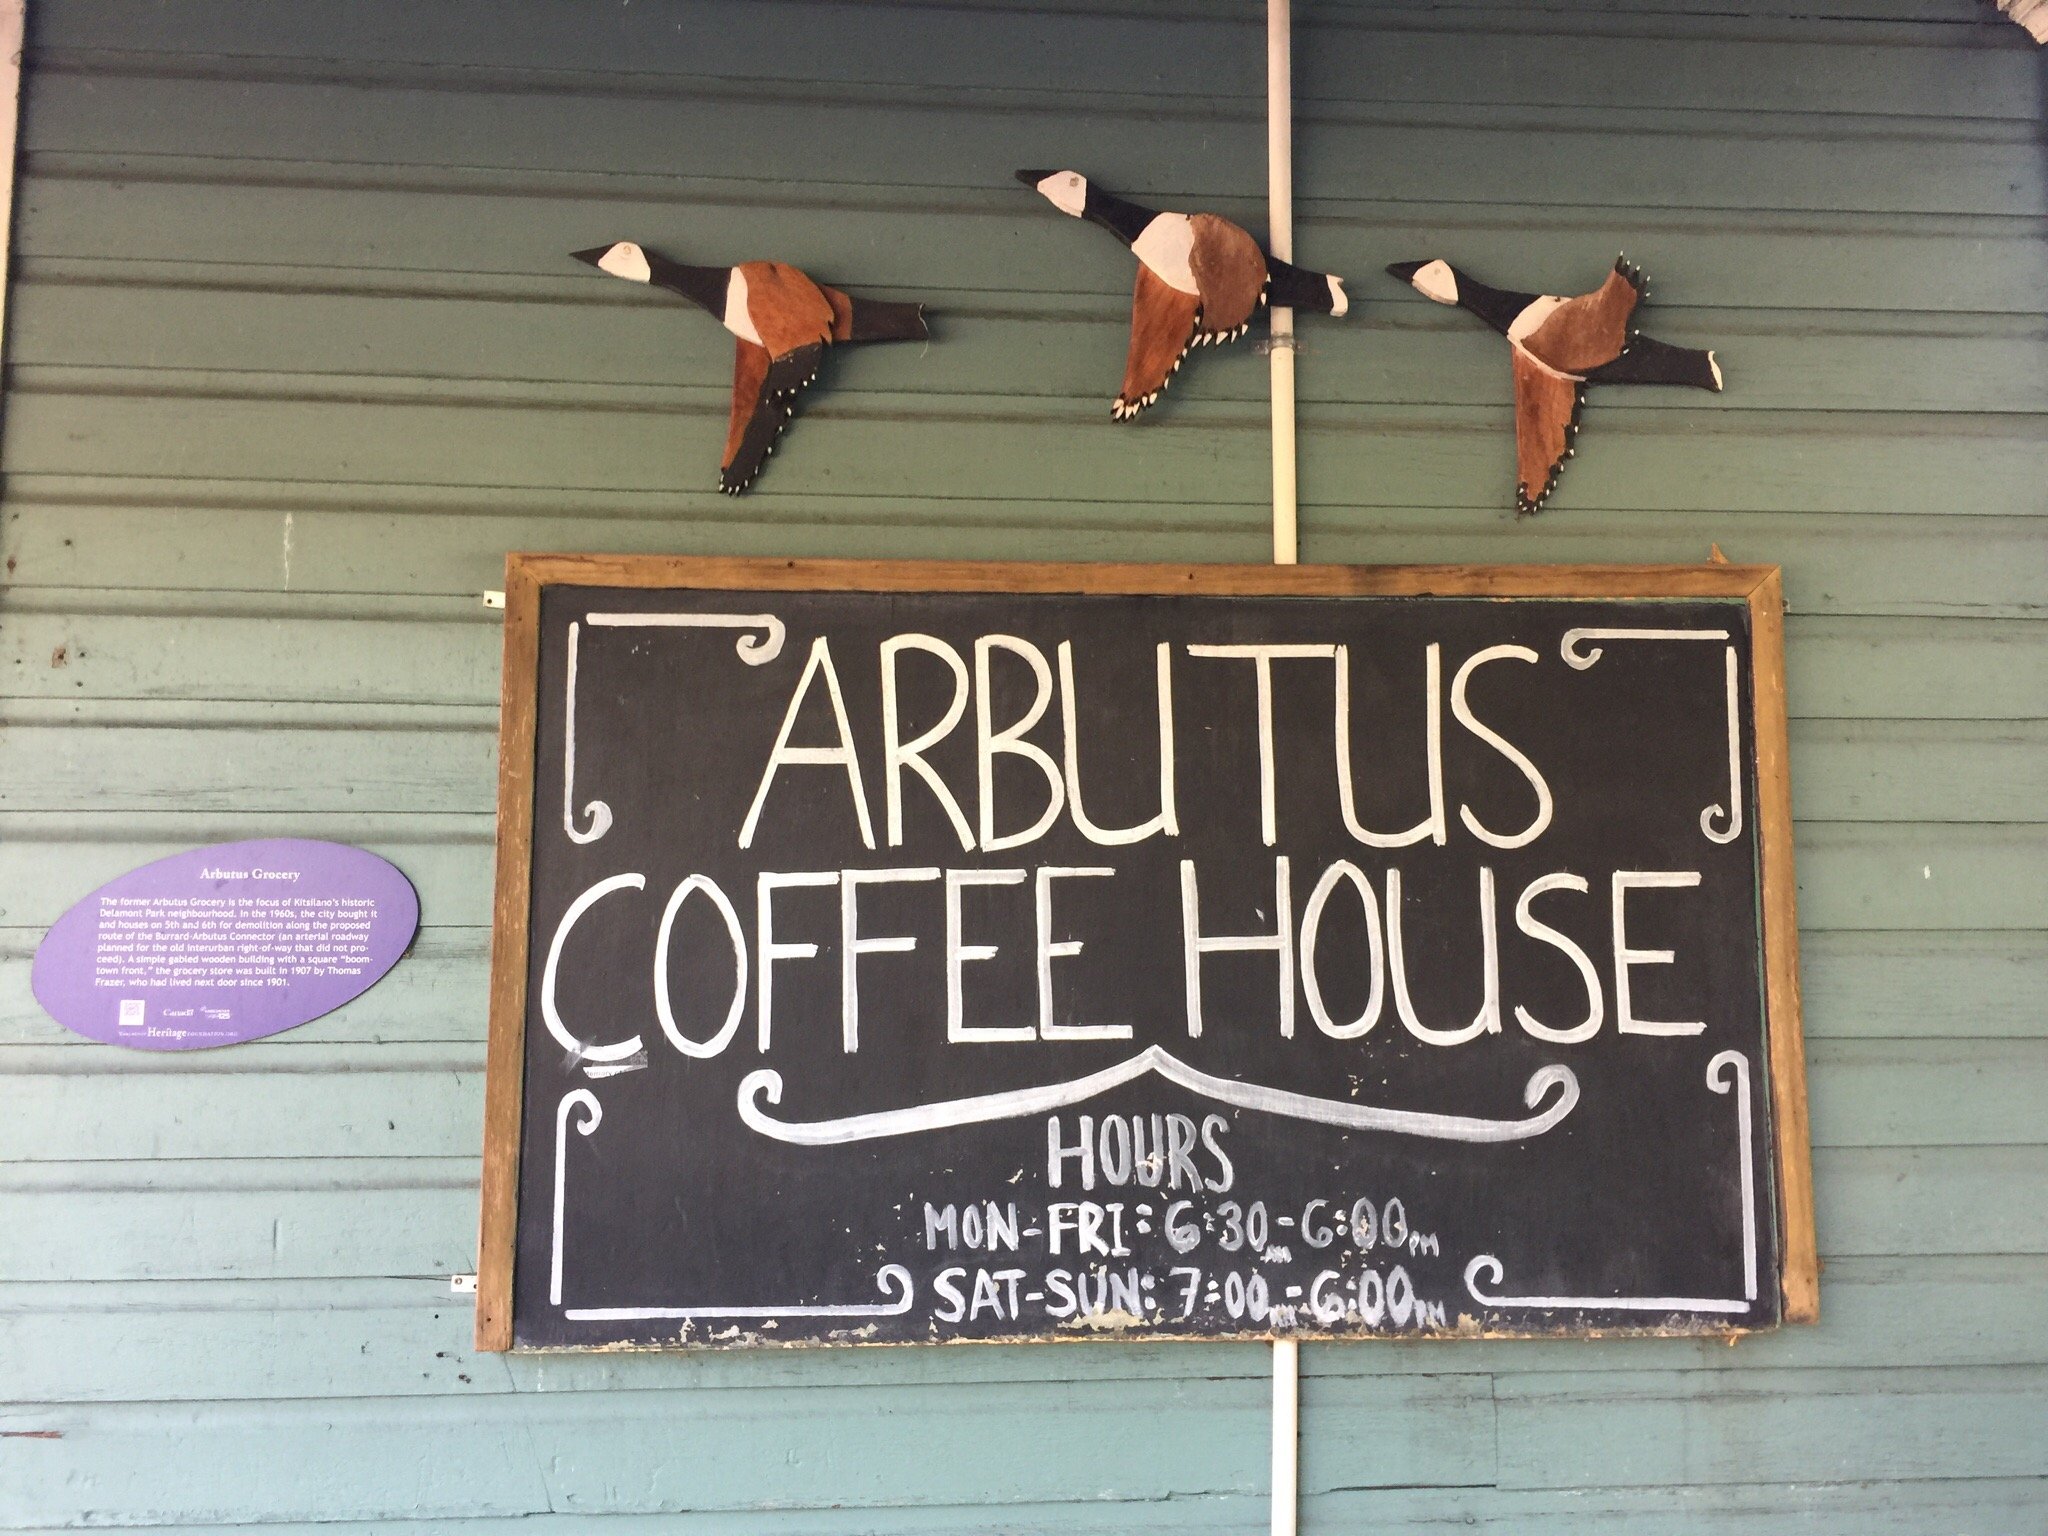 Arbutus Grocery
The former Arbutus Grocery is the focus of Kitsilano's historic
Delamont Park neighbourhood. In the 1960s, the city bought it
and houses on 5th and 6th for demolition along the proposed
route of the Burrard-Arbutus Connector (an arterial roadway
planned for the old interurban right-of-way that did not pro-
ceed). A simple gabled wooden building with a square "boom-
town front," the grocery store was built in 1907 by Thomas
Frazer, who had lived next door since 1901.
Canada 125
Vancouver Heritage Foundation.org
ARBUTUS
COFFEE HOUSE
HOURS
MON-FRI: 6:30AM-6:00PM
SAT-SUN: 7:00AM-6:00PM